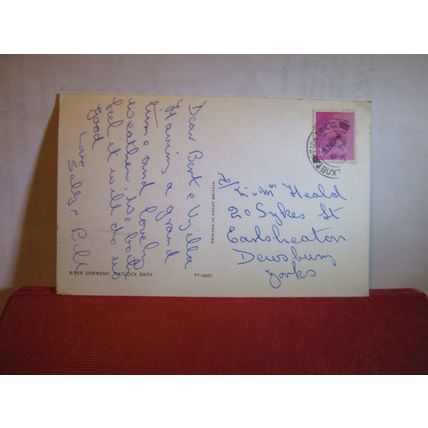 Dear Bert &
Having a grand
time and lovely
weather. We both
feel it will do us
good
Love
Sally & Bill
RIVER DERWENT, MATLOCK BATH
PT16603
PRINTED IN GREAT BRITAIN
Mr & Mrs Heald
20 Sykes St
Earlsheaton
Dewsbury
Yorks